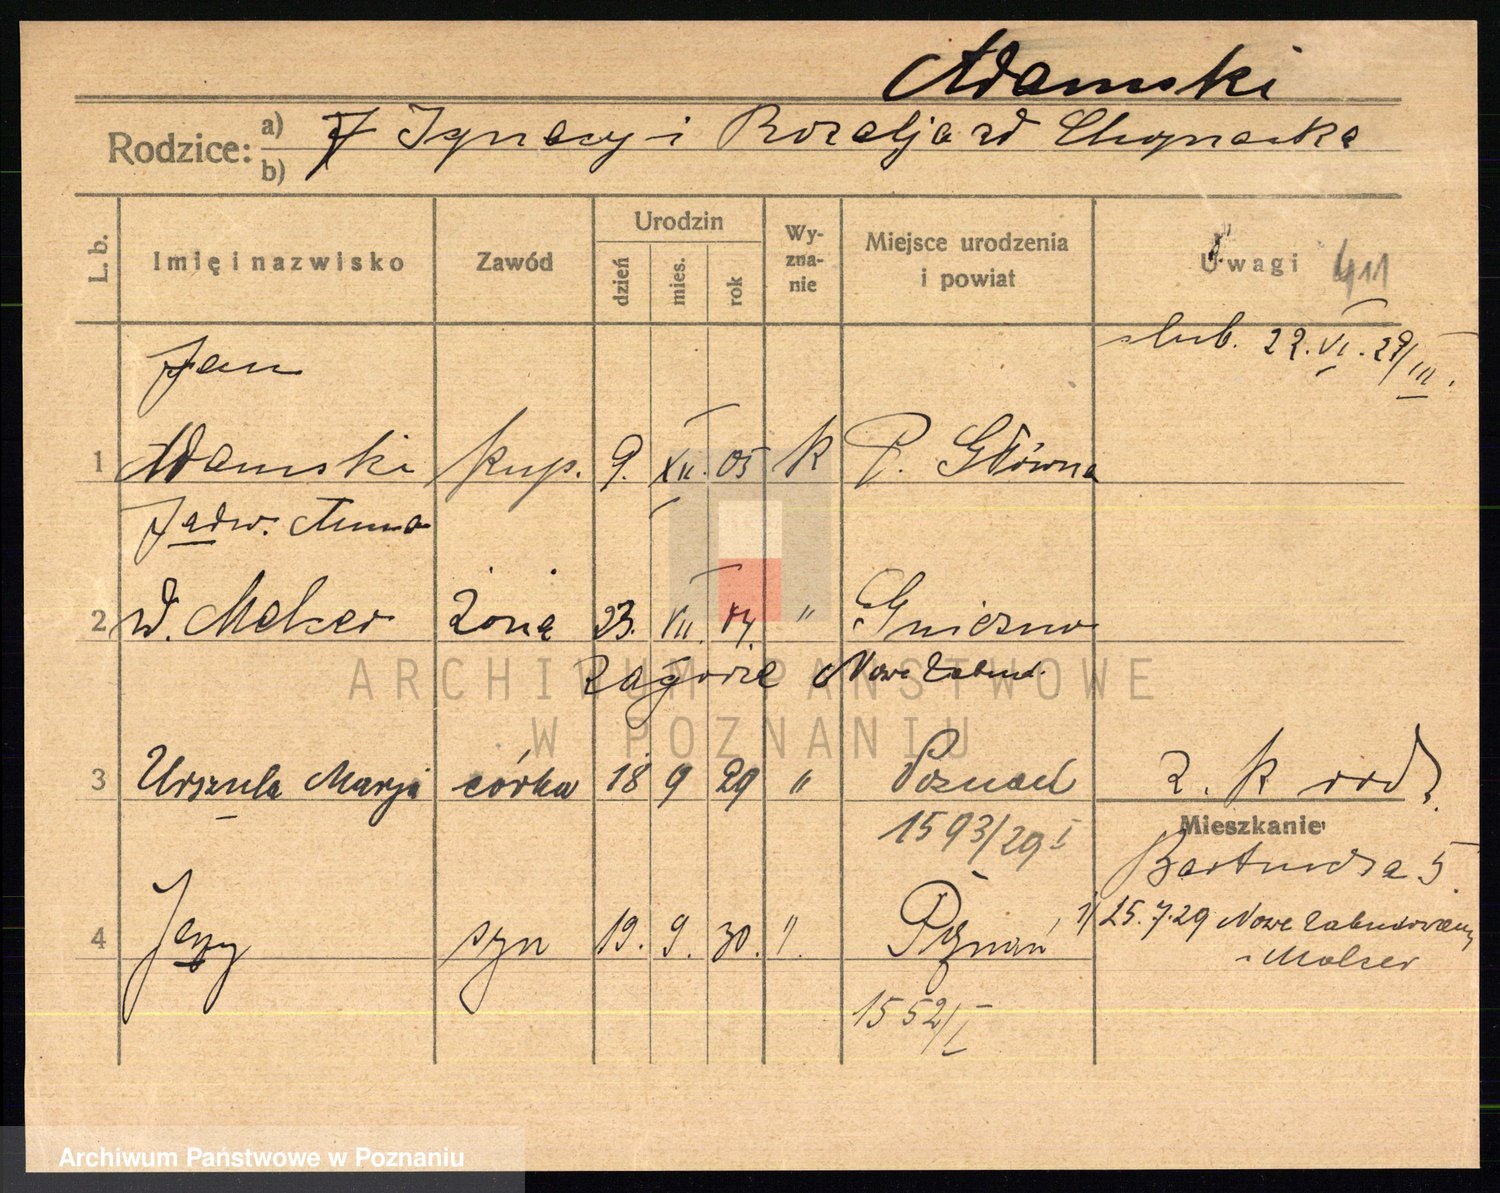 Adamski
Rodzice: a) Ignacy i Rozalja zd Chojnacka
b)
L. b. Imię i nazwisko Zawód Urodzin dzień mies. rok Wyznanie Miejsce urodzenia i powiat Uwagi 411
ślub. 22. VI. 29/III.
Jan
1 Adamski kup. 9. XII. 05 k P. Główna
Jadw. Anna
2 d. Melzer żona 23. VII. "  Gniezno
Zagórze Nowe Zabud.
ARCHIWUM PAŃSTWOWE
W POZNANIU
3 Urszula Marja córka 18 9 29 " Poznań 2. k
1593/29 I
Mieszkanie
4 Jerzy syn 19. 9. 30. " Poznań
5
25.7.29 Nowe Zabudowany
Melzer
1552/I
Archiwum Państwowe w Poznaniu